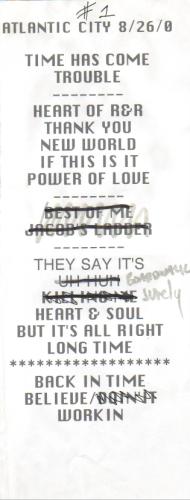 #1
ATLANTIC CITY 8/26/0
TIME HAS COME
TROUBLE
--------
HEART OF R&R
THANK YOU
NEW WORLD
IF THIS IS IT
POWER OF LOVE
--------
BEST OF ME
JACOB'S LADDER
--------
THEY SAY IT'S
UH HUH
SURELY
HEART & SOUL
BUT IT'S ALL RIGHT
LONG TIME
******************
BACK IN TIME
BELIEVE/
WORKIN